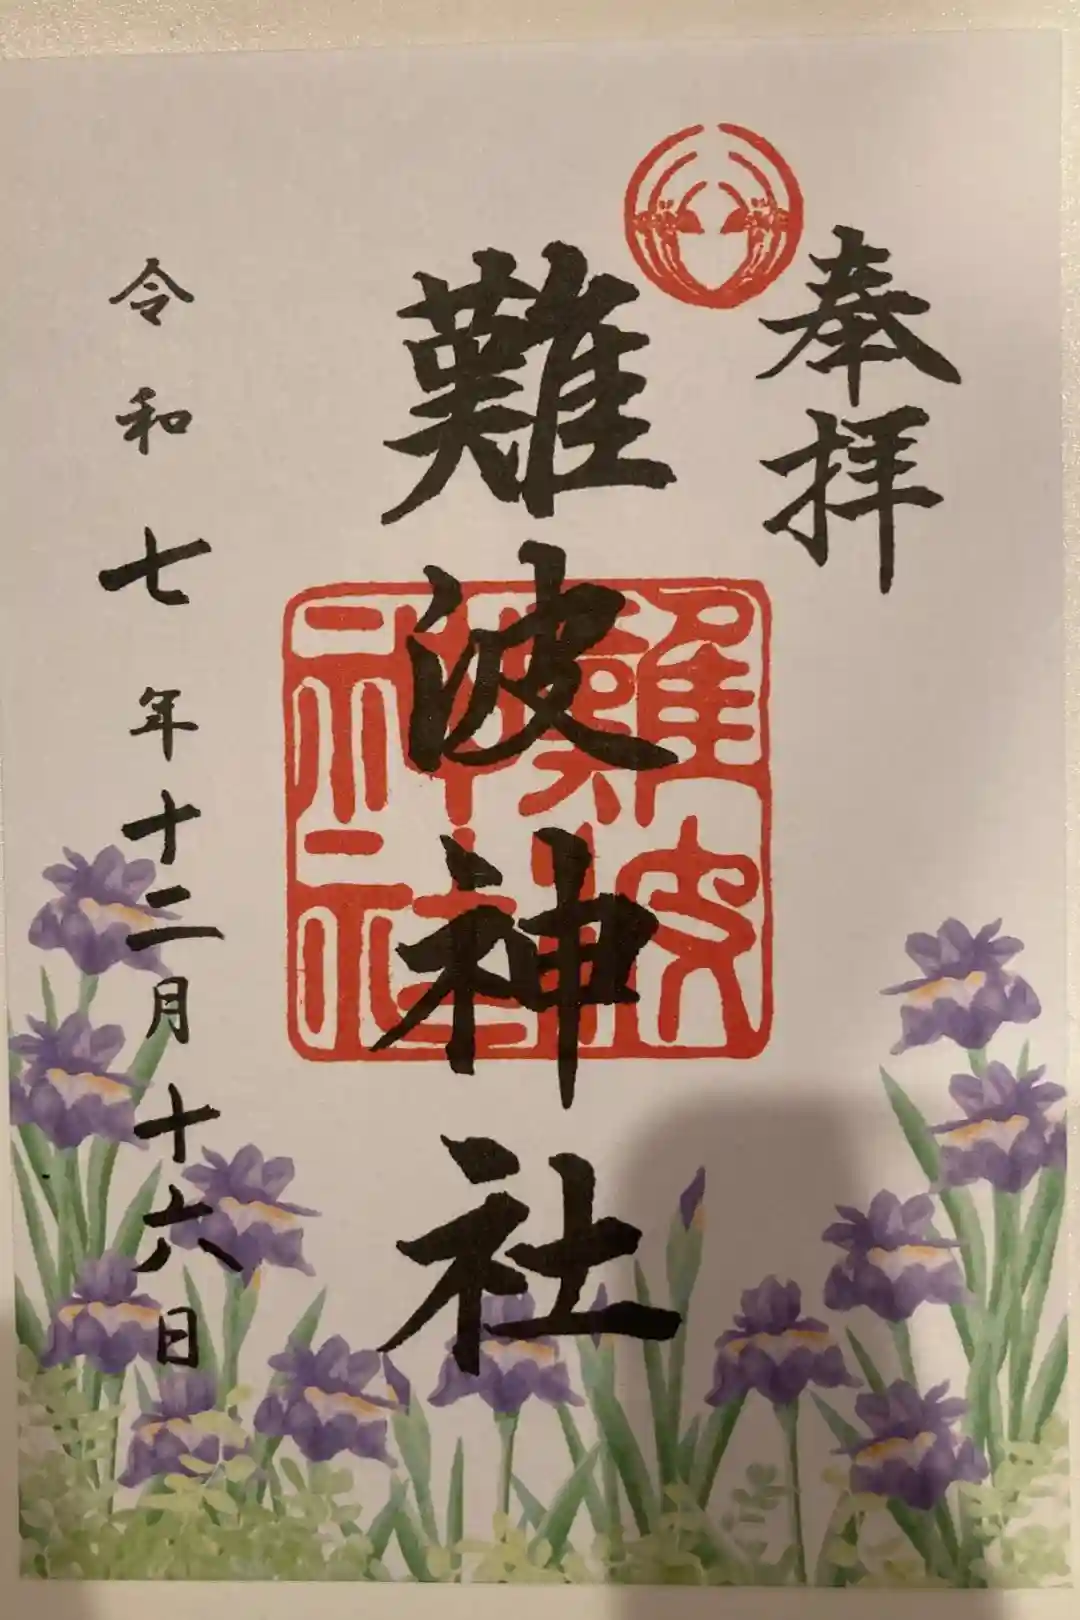 奉拝
難波神社
難波神社
令和七年十二月十六日